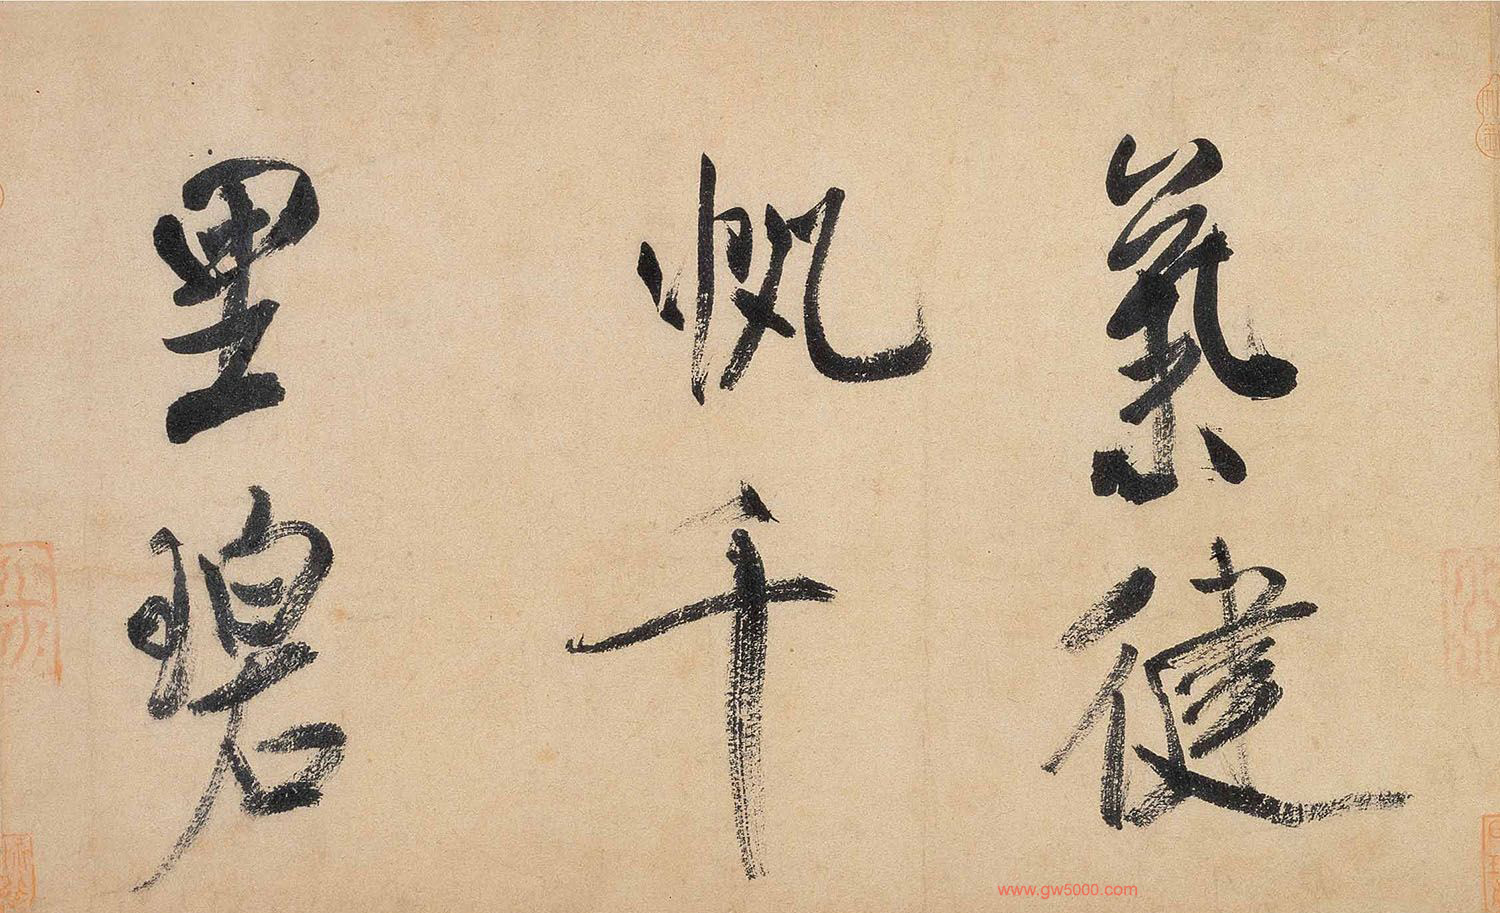 氣健
帆千
里碧
www.gw5000.com